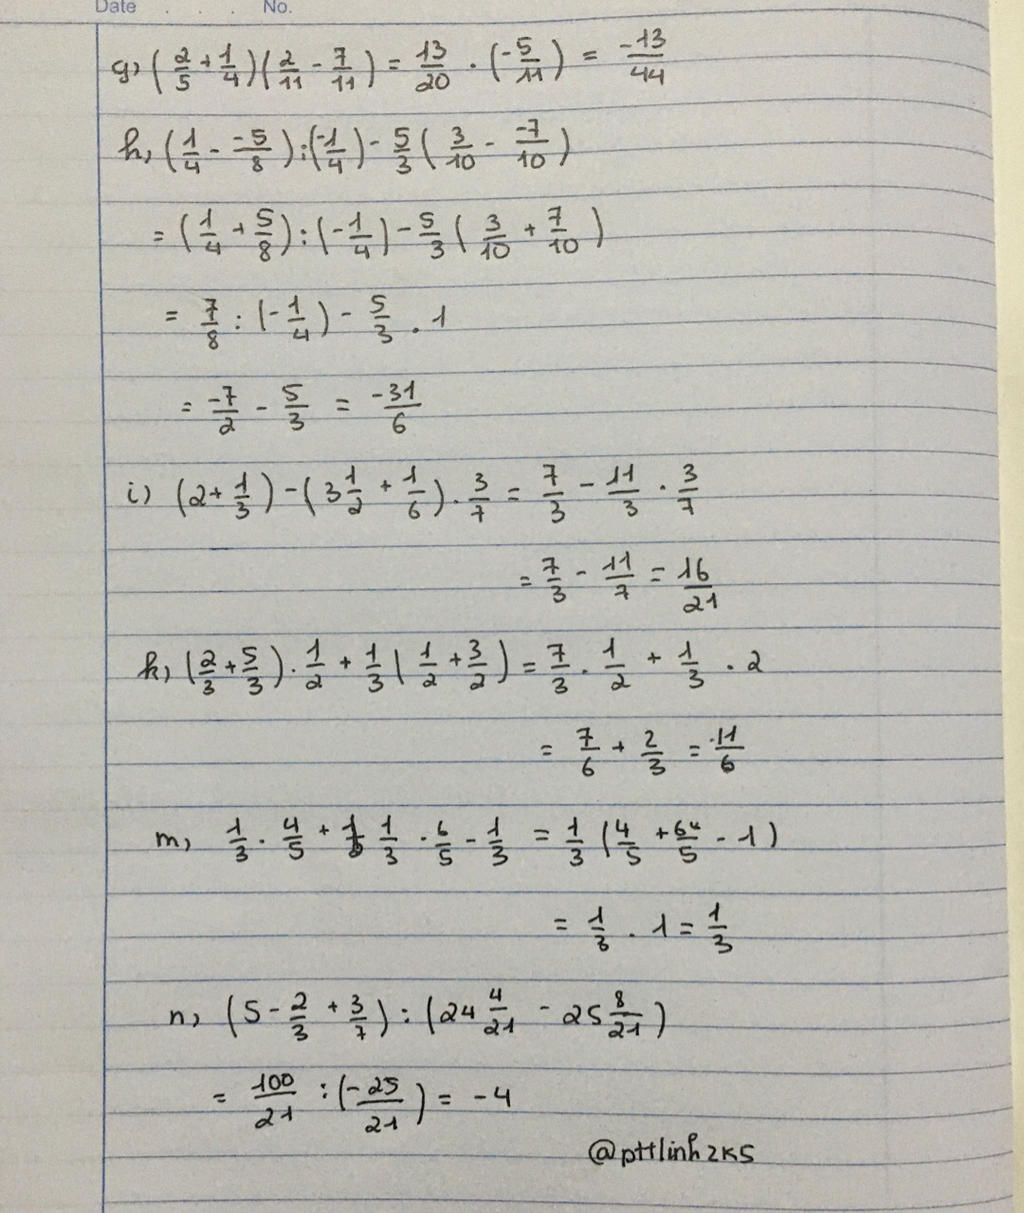 Date . . . No.
g, (2/5 + 1/4)(2/11 - 7/11) = 13/20 . (-5/11) = -13/44
h, (1/4 - -5/8) : (-1/4) - 5/3 (3/10 - -7/10)
= (1/4 + 5/8) : (-1/4) - 5/3 (3/10 + 7/10)
= 7/8 : (-1/4) - 5/3 . 1
= -7/2 - 5/3 = -31/6
i) (2 + 1/3) - (3 1/2 + 1/6) . 3/7 = 7/3 - 11/3 . 3/7
= 7/3 - 11/7 = 16/21
k, (2/3 + 5/3) . 1/2 + 1/3 (1/2 + 3/2) = 7/3 . 1/2 + 1/3 . 2
= 7/6 + 2/3 = 11/6
m, 1/3 . 4/5 + 1/3 . 6/5 - 1/3 = 1/3 (4/5 + 6/5 - 1)
= 1/3 . 1 = 1/3
n, (5 - 2/3 + 3/7) : (24 4/21 - 25 8/21)
= 100/21 : (-25/21) = -4
@pttlinh2k5